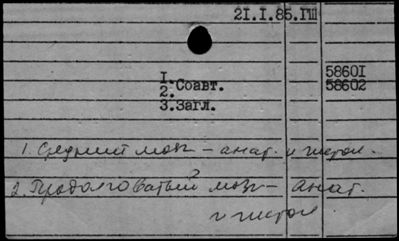 21.I.85.ГШ
1.
2. Соавт.
3. Загл.
58601
58602
1. Средний мозг – анат. и гистол.
2. Продолговатый мозг – анат.
и гистол.